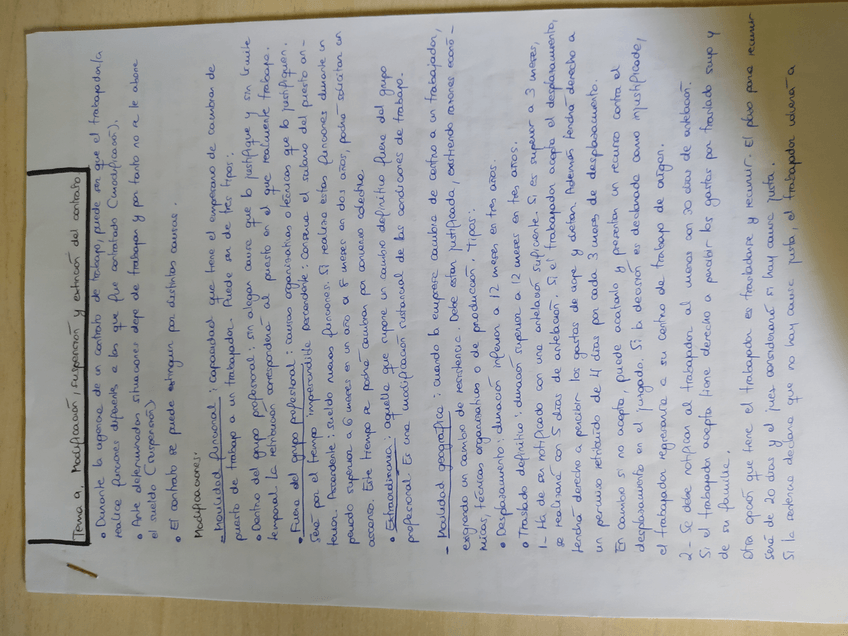 Tema 9, Modificación, suspensión y extinción del contrato.
• Durante la vigencia de un contrato de trabajo, puede ser que el trabajador/a
realice funciones diferente, a las que fue contratado (modificación).
• Ante determinadas situaciones deje de trabajar y por tanto no se le abone
el sueldo (suspensión)
• El contrato se puede extinguir por distintas causas.
Modificaciones:
- Movilidad funcional: capacidad que tiene el empresario de cambiar de
puesto de trabajo a un trabajador. Puede ser de tres tipos:
• Dentro del grupo profesional: sin alegar causa que lo justifique y sin límite
temporal. La retribución corresponderá al puesto en el que realmente trabajo.
• Fuera del grupo profesional: causas organizativas o técnicas que lo justifiquen.
será por el tiempo imprescindible. Descendente: conserva el salario del puesto an-
terior. Ascendente: sueldo nuevas funciones. Si realiza estas funciones durante un
periodo superior a 6 meses en un año a 8 meses en dos años, podrá solicitar un
ascenso. Este tiempo se podrá cambiar por convenio colectivo.
• Extraordinaria: aquella que supone un cambio definitivo fuera del grupo
profesional. Es una modificación sustancial de las condiciones de trabajo.
- Movilidad geográfica: cuando la empresa cambia de centro a un trabajador,
exigiendo un cambio de residencia. Debe estar justificada, existiendo razones econó-
micas, técnicas organizativas o de producción. Tipos:
• Desplazamiento: duración inferior a 12 meses en tres años.
• Traslado definitivo: duración superior a 12 meses en tres años.
1- Ha de ser notificado con una antelación suficiente. Si es superior a 3 meses,
se realizará con 5 días de antelación. Si el trabajador acepta el desplazamiento,
tendrá derecho a percibir los gastos de viaje y dietas. Además tendrá derecho a
un permiso retribuido de 4 días por cada 3 meses de desplazamiento.
En cambio si no acepta, puede acatarlo y presentar un recurso contra el
desplazamiento en el juzgado. Si la decisión es declarada como injustificada,
el trabajador regresaría a su centro de trabajo de origen.
2- Se debe notificar al trabajador al menos con 30 días de antelación.
Si el trabajador acepta tiene derecho a percibir los gastos por traslado suyo y
de su familia.
Otra opción que tiene el trabajador es trasladarse y recurrir. El plazo para recurrir
será de 20 días y el juez considerará si hay causa justa.
Si la sentencia declara que no hay causa justa, el trabajador volverá a